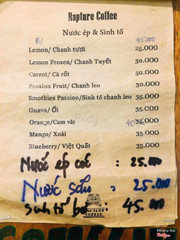 Rapture Coffee
Nước ép & Sinh tố
Lemon/ Chanh tươi 25.000
Lemon Frozen/ Chanh Tuyết 30.000
Carrot/ Cà rốt 30.000
Passion Fruit/ Chanh leo 30.000
Smothies Passion/Sinh tố chanh leo 35.000
Guava/ Ổi 35.000
Orange/Cam vắt
Mango/ Xoài 35.000
Blueberry/ Việt Quất 35.000
Nước ép cóc : 25.000
Nước sấu : 25.000
Sinh tố bơ : 45.000